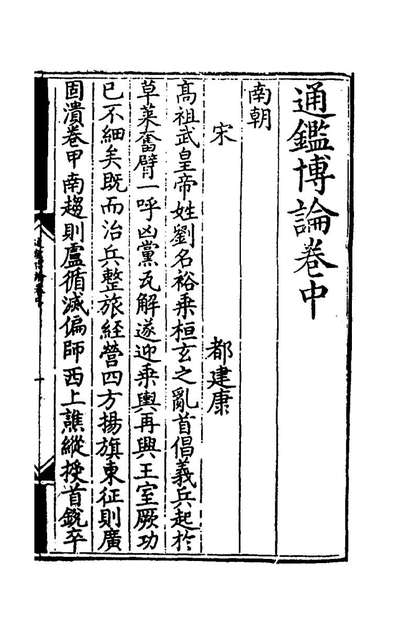 通鑑博論卷中
南朝
宋　都建康
髙祖武皇帝姓劉名裕乗桓玄之亂首倡義兵起於
草萊奮臂一呼凶黨瓦解遂迎乗輿再興王室厥功
已不細矣旣而治兵整旅經營四方揚旗東征則廣
固潰卷甲南趨則盧循滅偏師西上譙縱授首銳卒
通鑑博論卷中